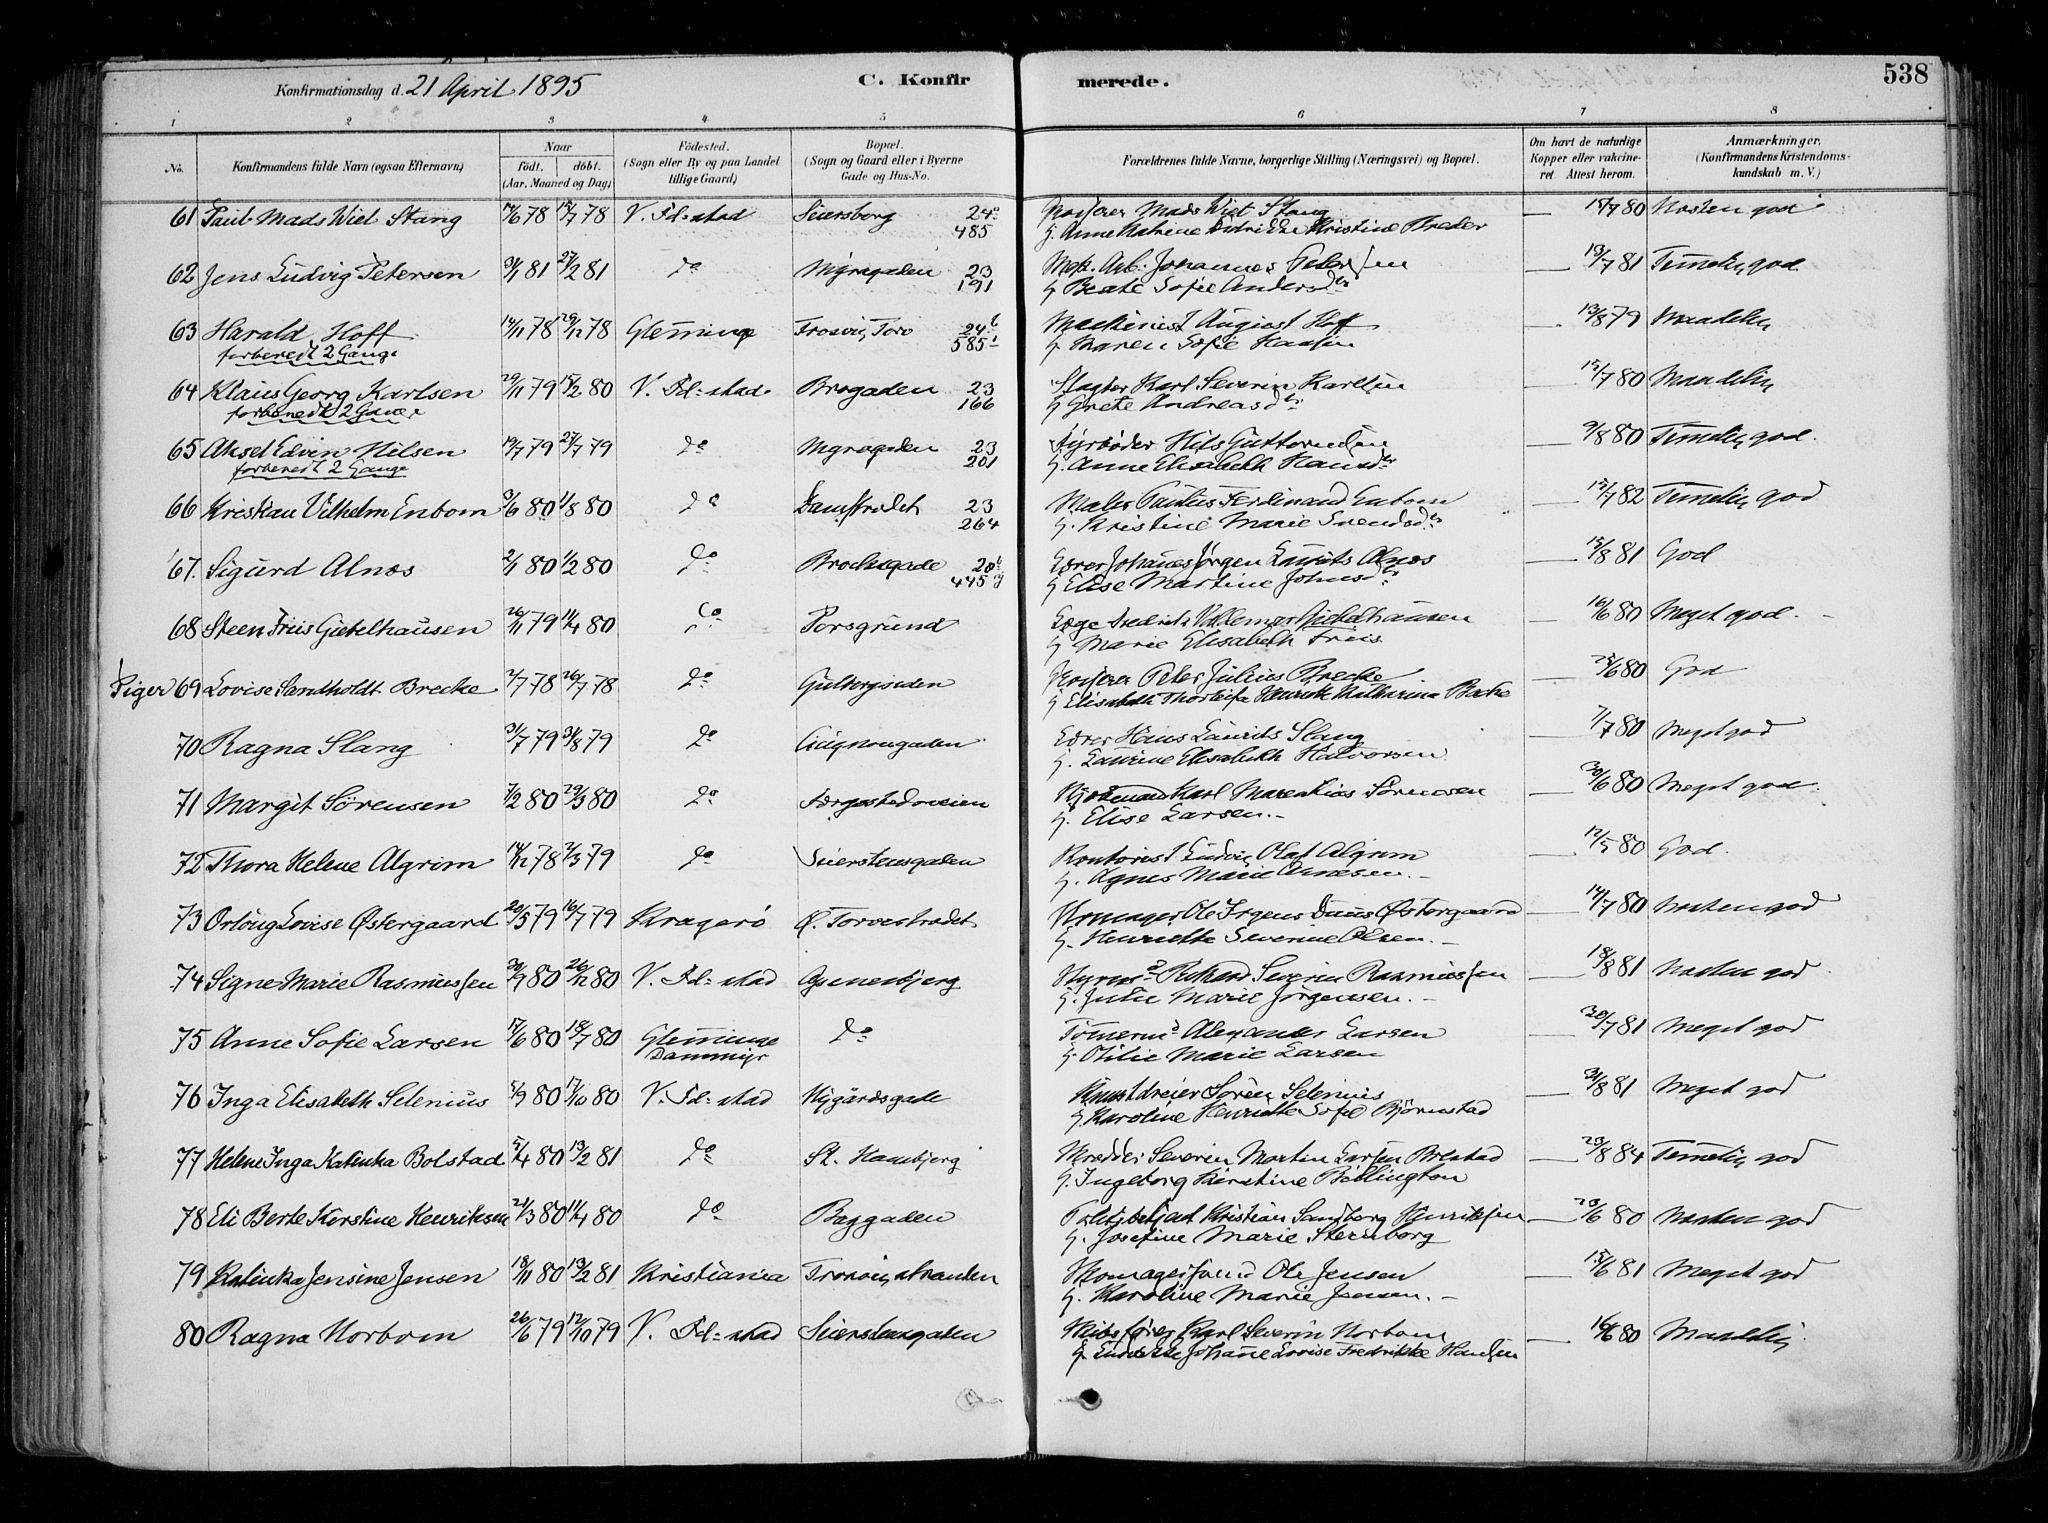 Konfirmationsdag d. 21 April 1895
C. Konfir
merede.
538
1 2 3 4 5 6 7 8
No. Konfirmandens fulde Navn (ogsaa Efternavn)
Naar
født. døbt.
(Aar, Maaned og Dag)
Födested.
(Sogn eller By og paa Landet tillige Gaard)
Bopæl.
(Sogn og Gaard eller i Byerne Gade og Hus-No.
Forældrenes fulde Navne, borgerlige Stilling (Næringsvei) og Bopæl.
Om havt de naturlige Kopper eller vakcineret. Attest herom.
Anmærkninger.
(Konfirmandens Kristendomskundskab m. V.)
61 Paul Mads Wiel Stang 14/6 78 15/7 78 V. Fd=stad Seiersborg 24 485 Mads Wiel Stang — 17/7 80 Næsten god
62 Jens Ludvig Petersen 31/1 81 27/2 81 do Nygagaden 23 191 Johannes Petersen — 13/7 81 Temelig god
H Beate Sofie Andersdtr
63 Harald Hoff 14/11 78 29/12 78 Glemminge Trosvig Torv 24 585 Maskinist August Hoff — 13/8 79 Maadelig
forberedt 2 Gange H. Karen Sofie Hansen
64 Klaus Georg Karlsen 29/11 79 15/2 80 V. Fd=stad Brogaden 23 166 Slagter Karl Severin Karlsen — 15/7 80 Maadelig
forberedt 2 Gange H Grete Andreasdtr
65 Aksel Edvin Nilsen 19/7 79 27/7 79 do 23 201 Fyrbøder Nils Guttormsen — 9/8 80 Temelig god.
forberedt 2 Gange H. Anne Elisabeth Hansdtr
66 Kristian Vilhelm Enbom 3/6 80 1/8 80 do Damstrædet 23 264 Maler Paulus Ferdinand Enbom — 15/7 82 Temelig god
H. Kristine Marie Svendsdtr
67. Sigurd Alnæs 2/1 80 1/2 80 do Brochsgade 20 445 Johannes Jørgen Laurits Alnæs — 15/8 81 God
H Elise Martine Johnsdtr
68 Steen Friis Giebelhausen 26/11 79 11/4 80 do Porsgrund Læge Fredrik Valdemar Giebelhausen — 16/6 80 Meget god. -
H Marie Elisabeth Friis
Piger 69 Lovise Sandholdt Brecke 2/7 78 26/7 78 do Peter Julius Brecke — 25/6 80 God
H Elisabeth Thorleifa Henrikke Katharina Backe
70 Ragna Stang 31/7 79 31/8 79 do Cicignongaden Hans Laurits Stang — 7/7 80 Meget god
H. Laurine Elisabeth Halvorsen
71 Margit Sørensen 7/2 80 29/3 80 do Færgestedsveien Kjøbmand Karl Marentius Sørensen — 30/6 80 Meget god.
H. Elise Larsen.-
72 Thora Helene Algrim 14/12 78 2/3 79 do Seierstensgaden Kontorist Ludvig Olaf Algrim — 12/5 80 God.
H. Agnes Marie Arnesen.-
73 Orloug Lovise Østergaard 20/5 79 16/7 79 Kragerø Ø. Torvestrædet Skomager Ole Irgens Duus Østergaard — 14/7 80 Næsten god
H. Henriette Severine Olsen.-
74 Signe Marie Rasmussen 30/9 80 26/12 80 V. Fd=stad Apenesbjerg Styrmd Severin Rasmussen — 18/8 81 Næsten god
H. Julie Marie Jørgensen.-
75 Anne Sofie Larsen 17/6 80 18/7 80 Glemminge Dammyr do Tømermd Alexander Larsen — 20/7 81 Meget god
H. Otilie Marie Larsen
76 Inga Elisabeth Selenius 5/9 80 17/10 80 V. Fd=stad Nygårdsgade Kunstdreier Søren Selenius — 31/8 81 Meget god
H. Karoline Henriette Sofie Bjørnstad
77 Helene Inga Katinka Bolstad 5/4 80 13/2 81 do St. Hansbjerg Severin Martin Larsen Bolstad — 23/8 84 Temelig god
H. Ingeborg Kirstine Billington
78 Eli Berte Kerstine Henriksen 21/3 80 11/4 80 do Baggaden Politibetjent Kristian Sandborg Henriksen — 23/6 80 Næsten god
H. Josefine Marie Sternborg
79 Katinka Jensine Jensen 18/11 80 13/2 81 Kristiania Trosvigstranden Skomagersvend Ole Jensen — 15/6 81 Meget god
H. Karoline Marie Jensen.-
80 Ragna Norbom 26/6 79 12/10 79 V. Fd=stad Seierstensgaden Skibsfører Karl Severin Norbom — 16/6 80 Maadelig
H. Johanne Lovise Fredrikke Hansen